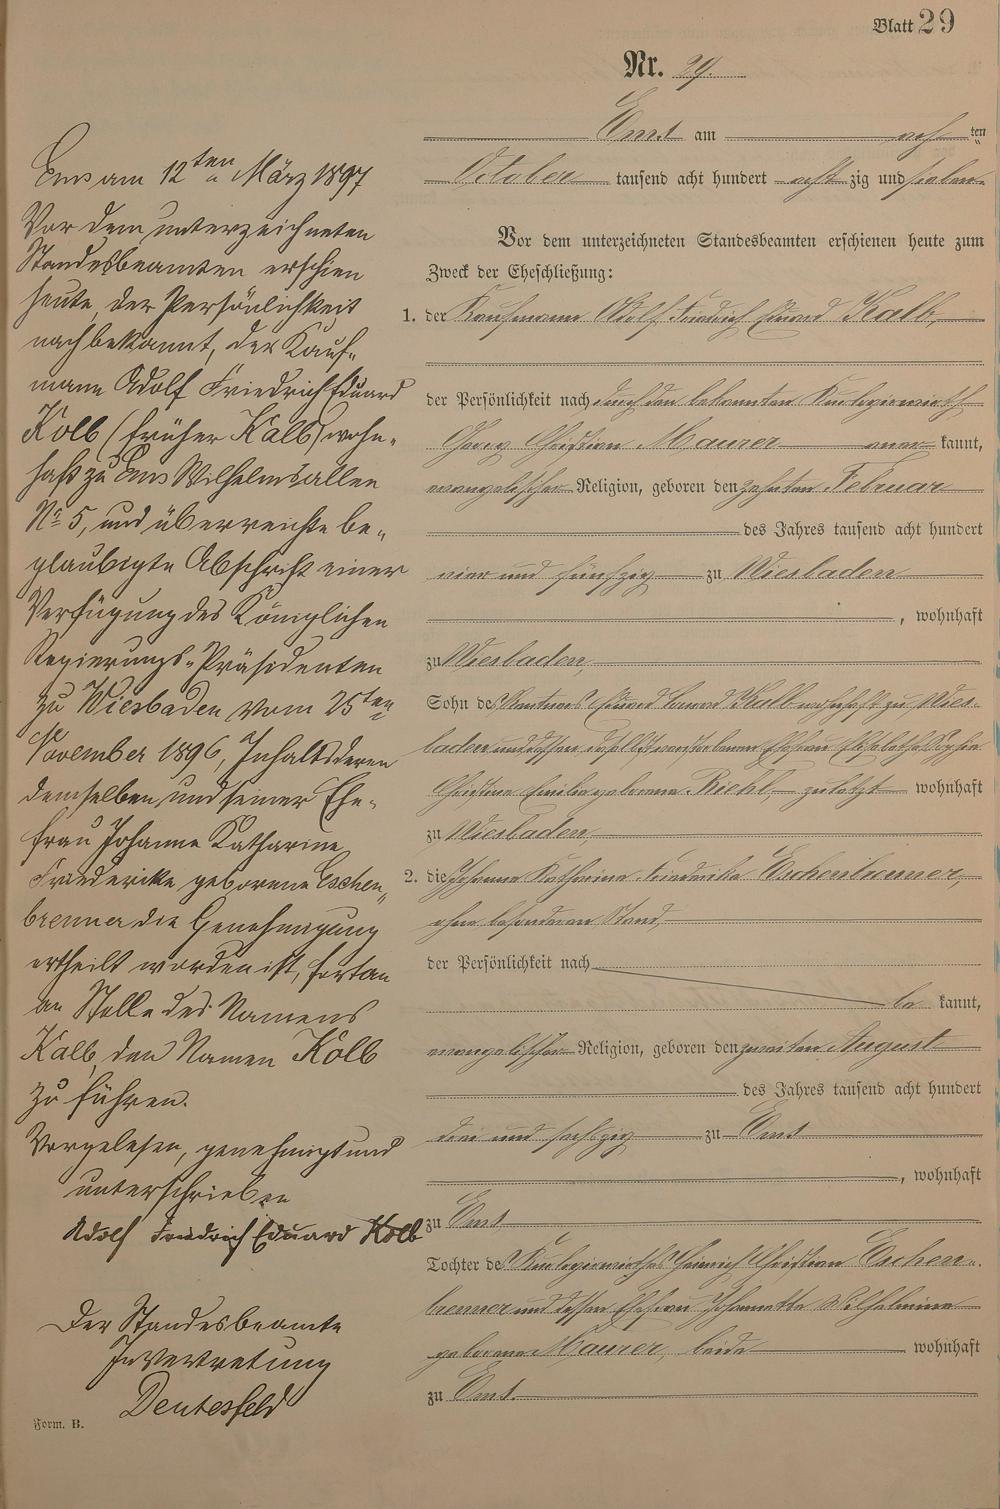 Blatt 29
Nr. 29.
Ems am achten
October tausend acht hundert achtzig und sieben
Vor dem unterzeichneten Standesbeamten erschienen heute zum
Zweck der Eheschließung:
1. der Kaufmann Adolf Friedrich Eduard Kalb,
der Persönlichkeit nach durch den bekannten Kurlogierwirth
Georg Christian Maurer anerkannt,
evangelischer Religion, geboren den zehnten Februar
des Jahres tausend acht hundert
vier und fünfzig zu Wiesbaden
, wohnhaft
zu Wiesbaden,
Sohn des Rentners Eduard Kalb wohnhaft zu Wies-
baden und dessen daselbst verstorbener Ehefrau Elisabethe Sophie
Christine Emilie geborene Riehl, zuletzt wohnhaft
zu Wiesbaden,
2. die Johanne Katharine Friederike Eschenbrenner,
ohne besonderen Stand,
der Persönlichkeit nach
bekannt,
evangelischer Religion, geboren den zweiten August
des Jahres tausend acht hundert
drei und sechszig zu Ems
, wohnhaft
zu Ems,
Tochter des Kurlogierwirthes Heinrich Christian Eschen-
brenner und dessen Ehefrau Johannette Wilhelmine
geborene Maurer, beide wohnhaft
zu Ems.
Ems am 12ten März 1897
Vor dem unterzeichneten
Standesbeamten erschien
heute, der Persönlichkeit
nach bekannt, der Kauf-
mann Adolf Friedrich Eduard
Kolb (früher Kalb) wohn-
haft zu Ems Wilhelmsallee
No 5, und überreichte be-
glaubigte Abschrift einer
Verfügung des Königlichen
Regierungs-Präsidenten
zu Wiesbaden vom 25ten
November 1896, Inhalts deren
demselben und seiner Ehe-
frau Johanne Katharine
Friederike geborene Eschen-
brenner die Genehmigung
ertheilt worden ist, fortan
an Stelle des Namens
Kalb, den Namen Kolb
zu führen.
Vorgelesen, genehmigt und
unterschrieben
Adolf Friedrich Eduard Kolb
Der Standesbeamte
In Vertretung
Deutesfeld
Form. B.